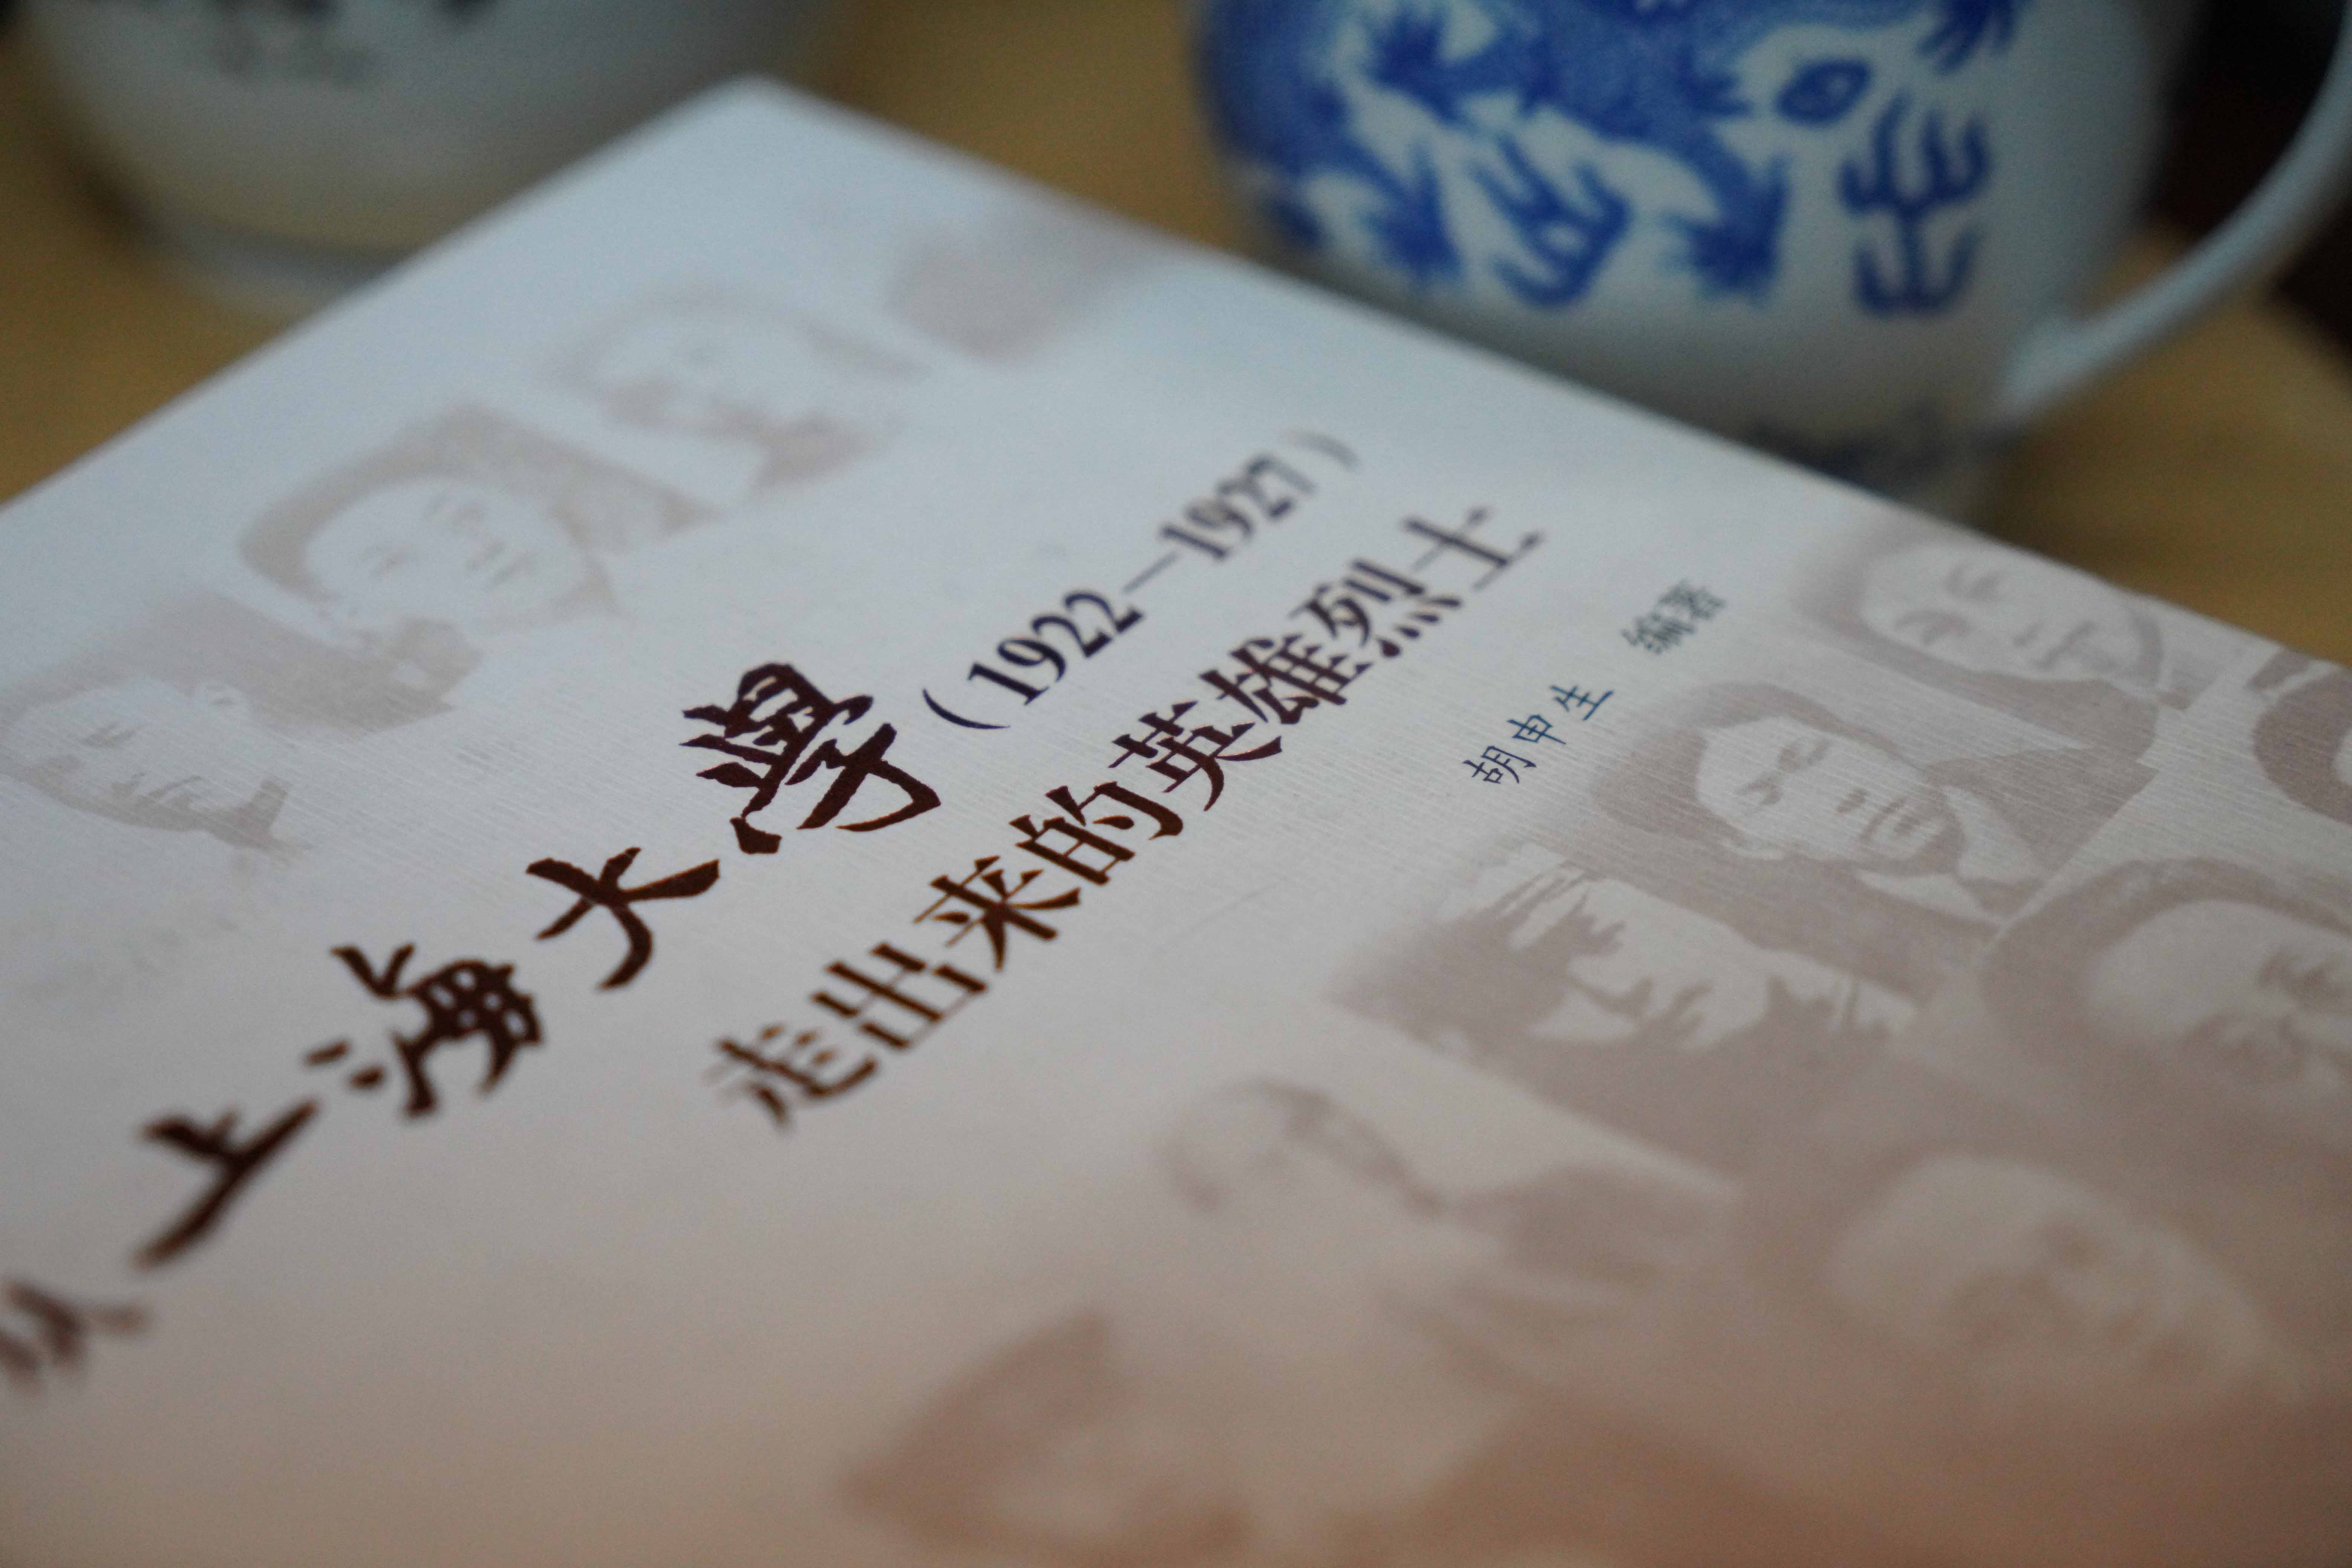 从上海大學(1922—1927)
走出来的英雄烈士
胡申生 编著